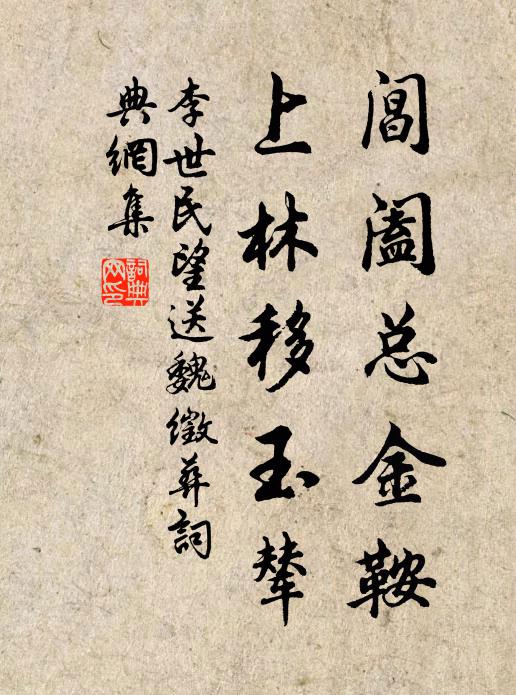 閶闔总金鞍
上林移玉輦
李世民望送魏徵葬詞
典網集
詞典
网印